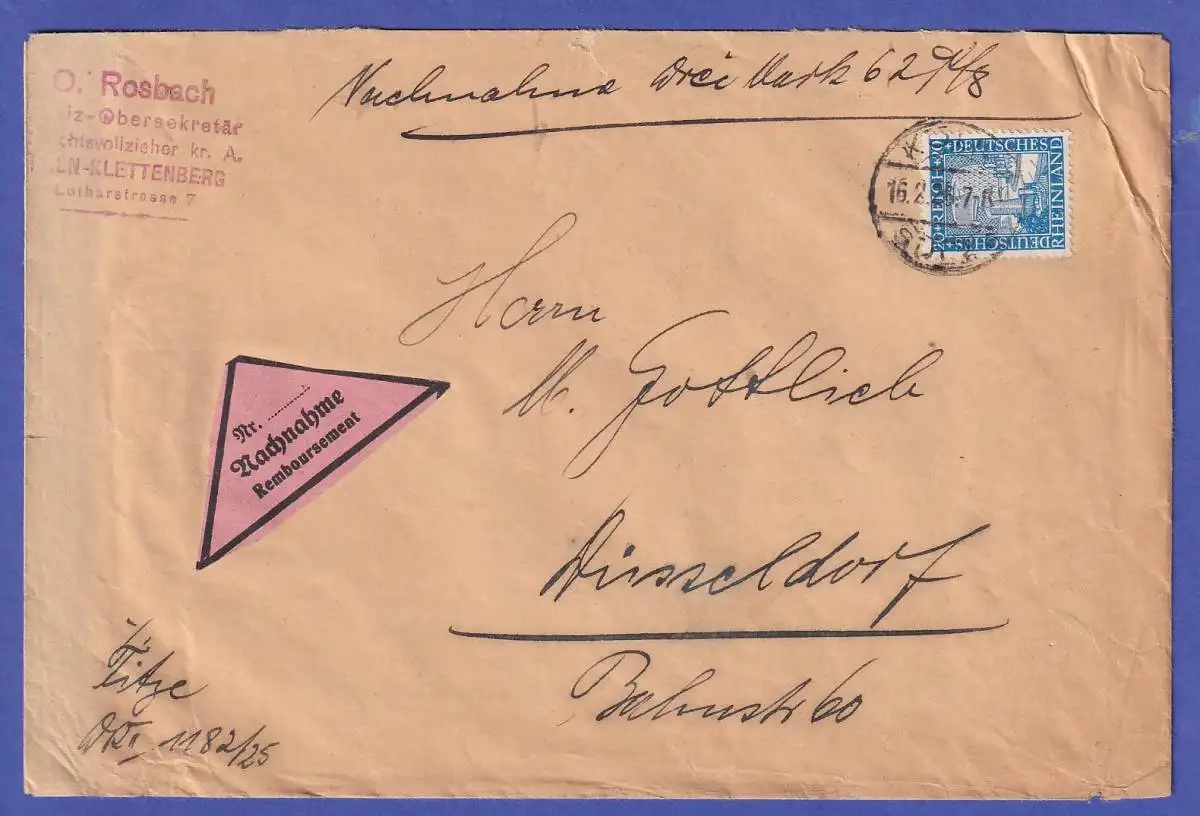 O. Rosbach
iz-Obersekretär
chtsvollzieher kr. A.
LN-KLETTENBERG
Lotharstrasse 7
Nachnahme Drei Mark 62 Pfg
16.2.
DEUTSCHES
RHEINLAND
DEUTSCHES
20 REICH 20
Herrn
M. Gottlieb
Düsseldorf
Bahnstr 60
Nr.
Nachnahme
Remboursement
1182/25